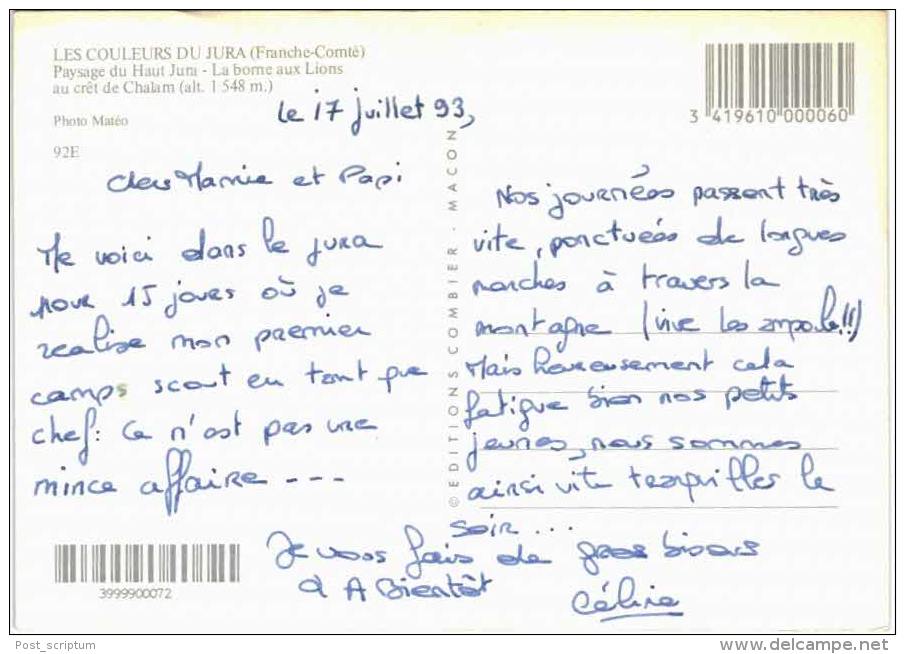 LES COULEURS DU JURA (Franche-Comté)
Paysage du Haut Jura - La borne aux Lions
au crêt de Chalam (alt. 1 548 m.)
Photo Matéo
92E
3 419610 000060
le 17 juillet 93,
cher Mamie et Papi
Me voici dans le jura
pour 15 jours où je
realise mon premier
camps scout en tant que
chef: Ca n'est pas une
mince affaire ---
© EDITIONS COMBIER - MACON
Nos journées passent très
vite, ponctuées de longues
marches à travers la
montagne (vive les ampoules!!)
Mais heureusement cela
fatigue bien nos petits
jeunes, nous sommes
ainsi vite tranquilles le
soir...
Je vous fais de gros bisous
à Bientôt
Céline
3999900072
Post_scriptum
www.delcampe.net